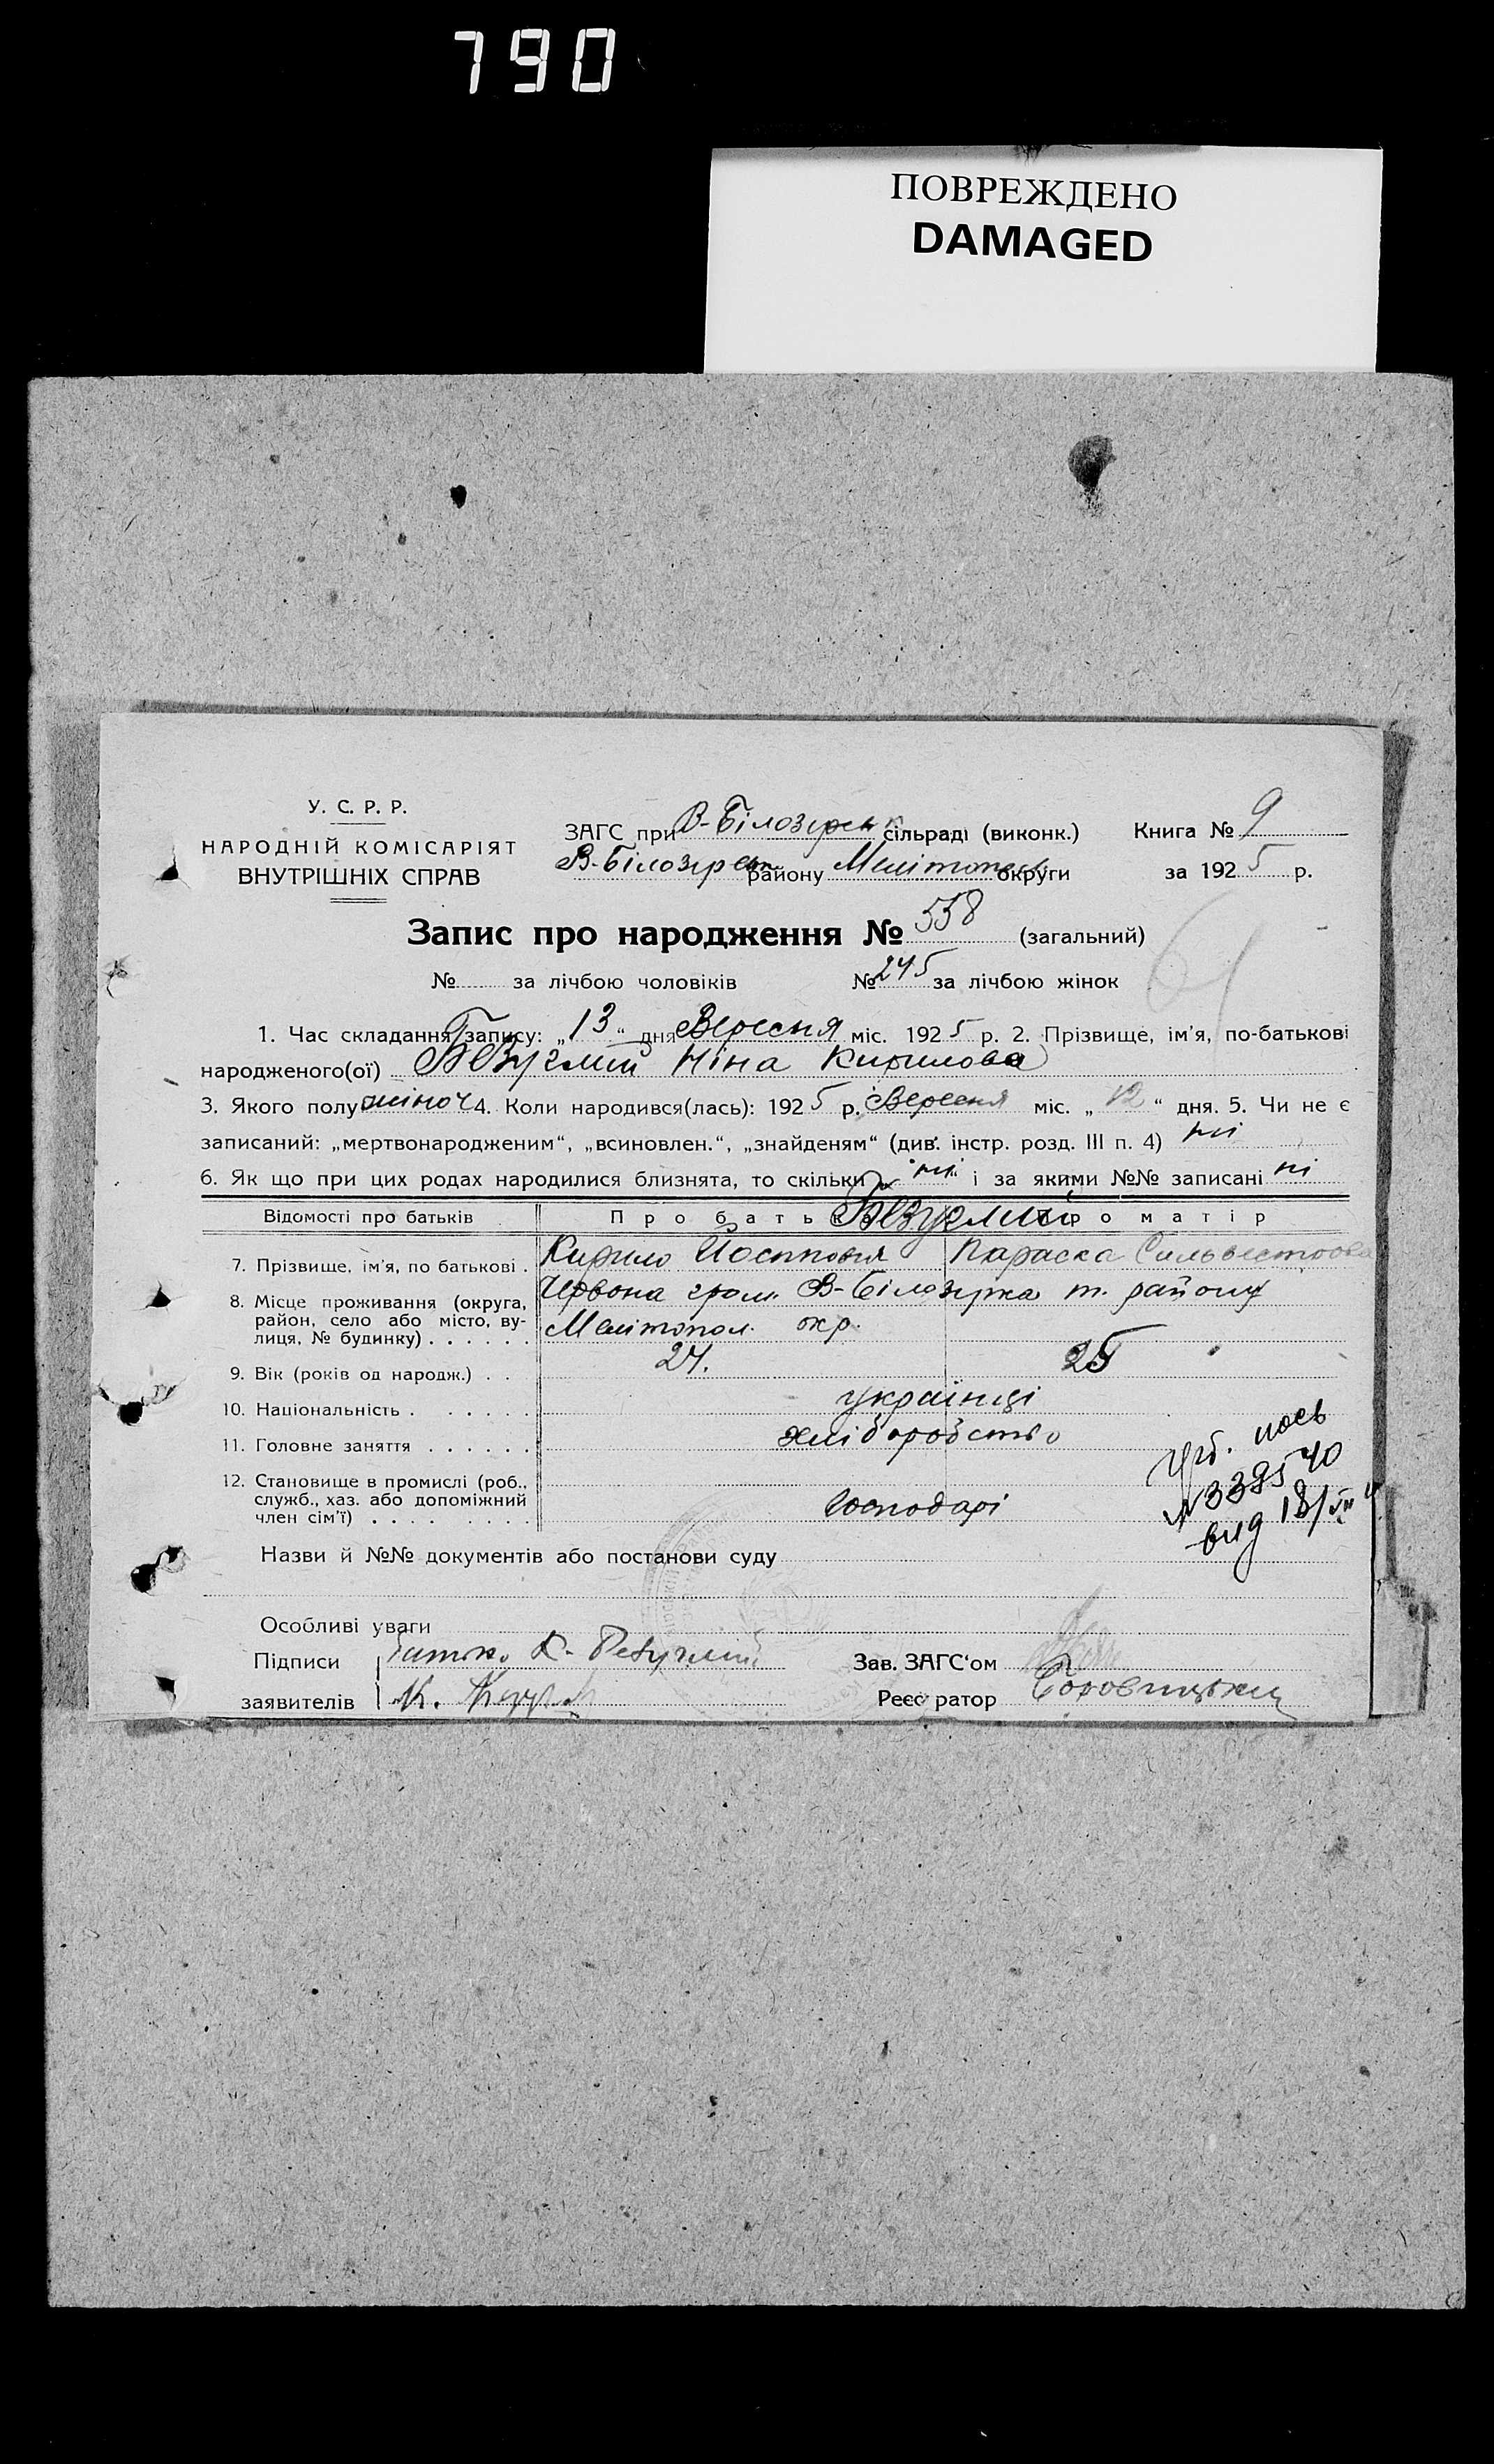 790
ПОВРЕЖДЕНО
DAMAGED
У. С. Р. Р.
НАРОДНІЙ КОМІСАРІЯТ
ВНУТРІШНІХ СПРАВ
ЗАГС при В-Білозерськ сільраді (виконк.)
В-Білозерськ району Мелітопольськ округи
Книга № 9
за 1925 р.
Запис про народження № 558 (загальний)
№ за лічбою чоловіків № 245 за лічбою жінок
1. Час складання запису: „13“ дня Вересня міс. 1925 р. 2. Прізвище, ім'я, по-батькові
народженого(ої) Безуглий Ніна Кирилова
3. Якого полу жіноч 4. Коли народився(лась): 1925 р. Вересня міс. „12“ дня. 5. Чи не є
записаний: „мертвонародженим“, „всиновлен.“, „знайденям“ (див. інстр. розд. III п. 4) ні
6. Як що при цих родах народилися близнята, то скільки ні і за якими №№ записані ні
Відомості про батьків Про батька Про матір
Безуглий
7. Прізвище, ім'я, по батькові . Кирило Йосипович Параска Сильвестрова
8. Місце проживання (округа,
район, село або місто, ву-
лиця, № будинку) . . . . . .
Червона гром. В-Білозірка т. району
Мелітопол. окр.
9. Вік (років од народж.) . . 24. 25
10. Національність . . . . . . українці
11. Головне заняття . . . . . . хліборобство
12. Становище в промислі (роб.,
служб., хаз. або допоміжний
член сім'ї) . . . . . . . .
Господарі
№339540
вид 18/VII
Назви й №№ документів або постанови суду
Особливі уваги
Підписи
заявителів
батько К. Безуглий
К.
Зав. ЗАГС'ом
Реєстратор Боровицький